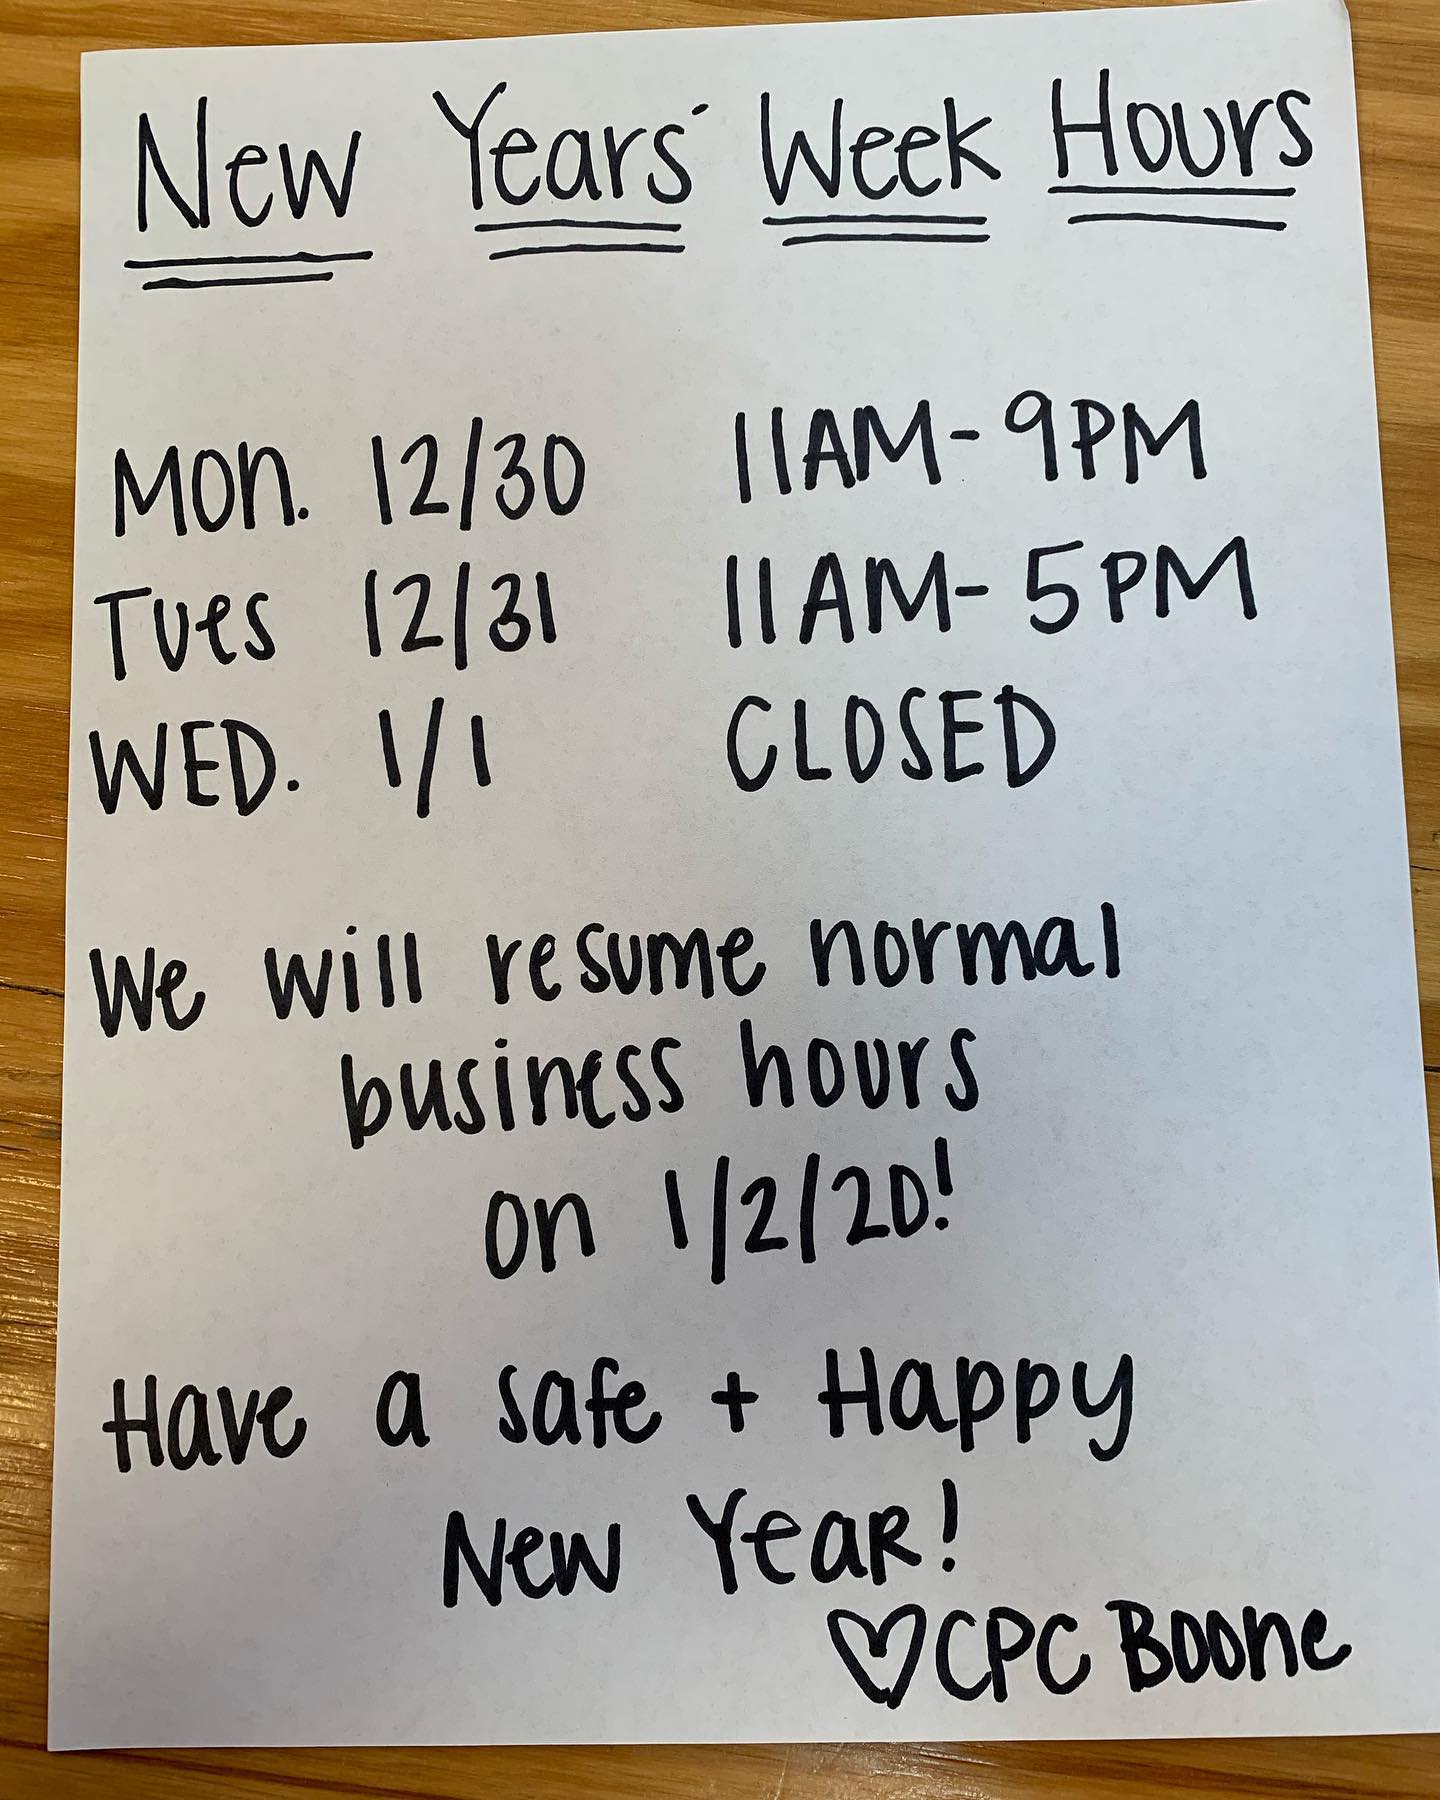 New Years' Week Hours
Mon. 12/30 11AM-9PM
Tues 12/31 11AM-5PM
WED. 1/1 CLOSED
We will resume normal
business hours
on 1/2/20!
Have a safe + Happy
New YeaR!
♡CPC Boone